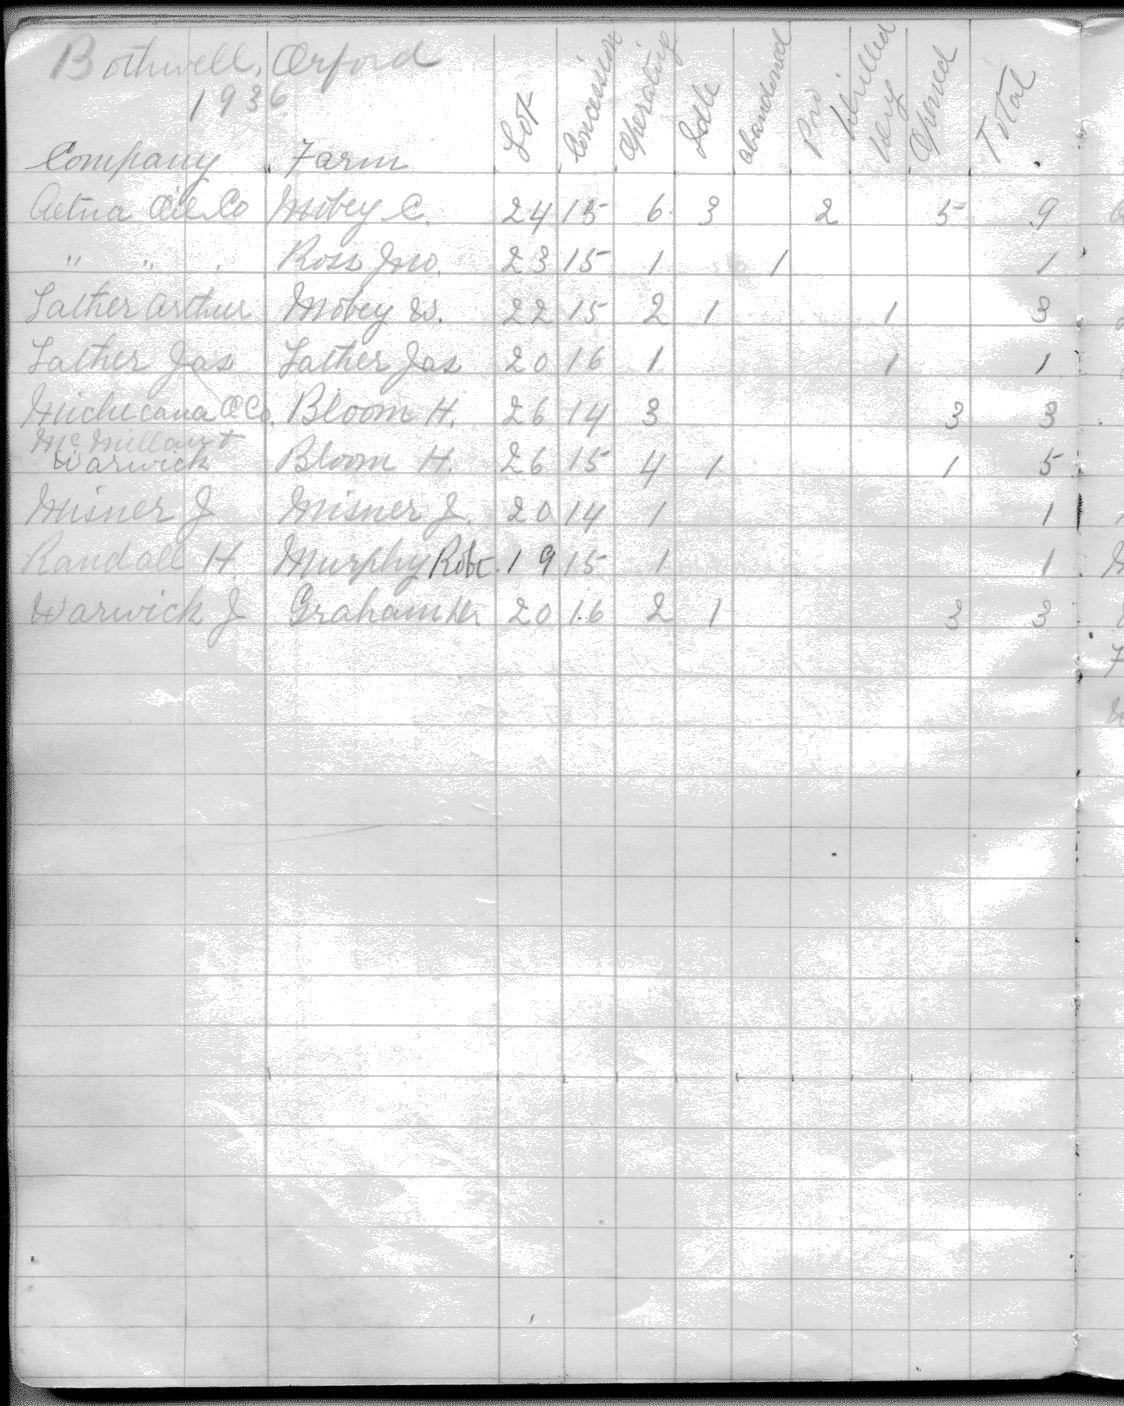 Bothwell, Orford
1936
Company Farm Lot Concession Operating Idle abandoned Pro drilled Dry Opened Total
Aetna Oil Co Mobey C. 24 15 6 3 2 5 9
" " Ross Jno. 23 15 1 1 1
Lather Arthur Mobey W. 22 15 2 1 1 3
Lather Jas Lather Jas 20 16 1 1 1
Michicana O Co. Bloom H. 26 14 3 3 3
McMillan +
Warwick Bloom H. 26 15 4 1 1 5
Misner J Misner J. 20 14 1 1
Randall H. Murphy Robt. 19 15 1 1
Warwick J Graham 20 16 2 1 3 3